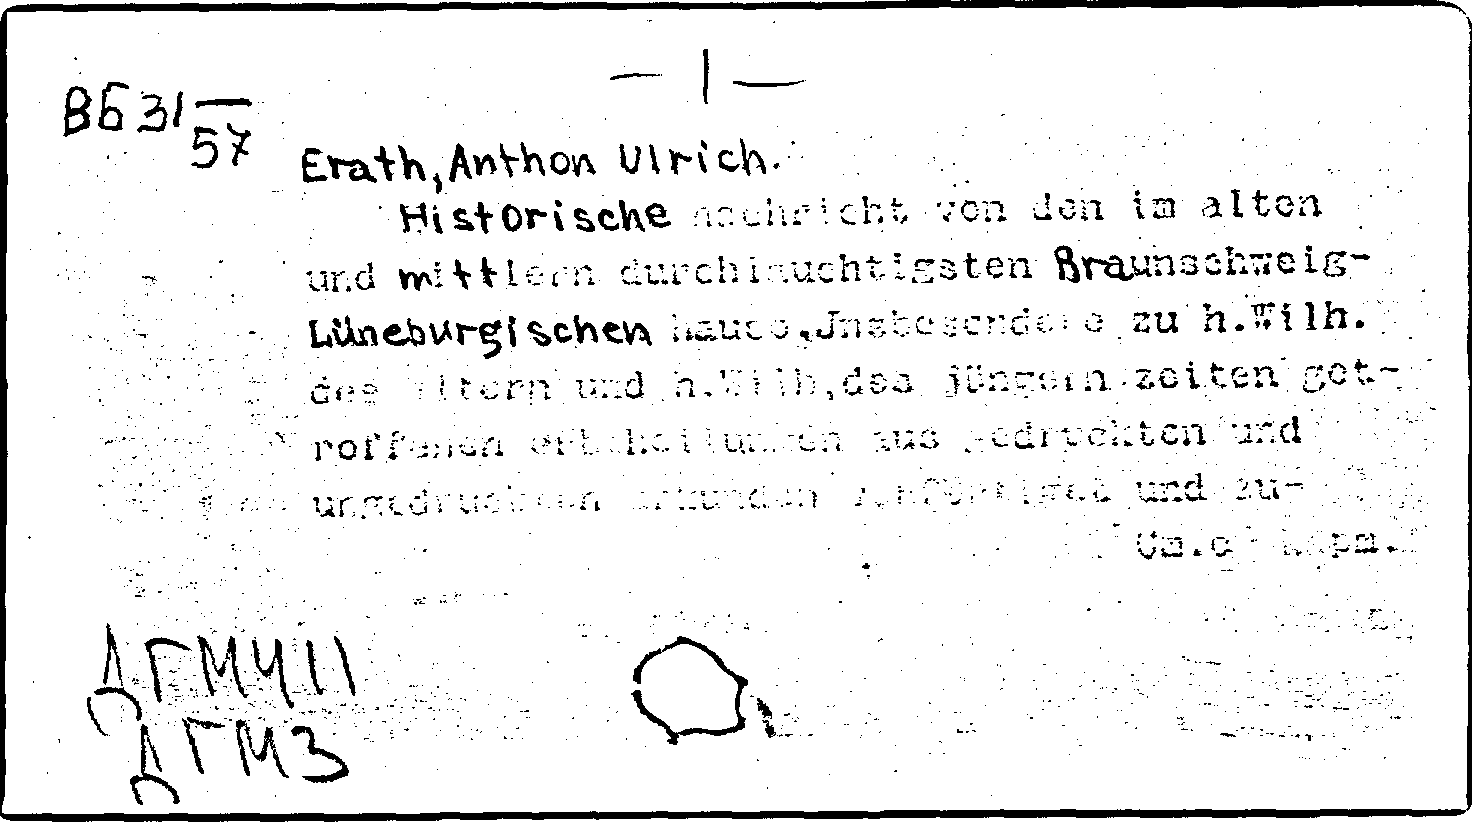 — 1 —
Вб 31/57
Erath, Anthon Ulrich.
Historische nachricht von den im alten
und mittlern durchlauchtigsten Braunschweig-
Lüneburgischen hause, Jnsbesondere zu h. Wilh.
des ältern und h. Wilh, des jüngern zeiten get-
roffenen erbtheilungen aus gedruckten und
ungedruckten urkunden und zu-
См.
ДГМЧ 11
ДГМЗ